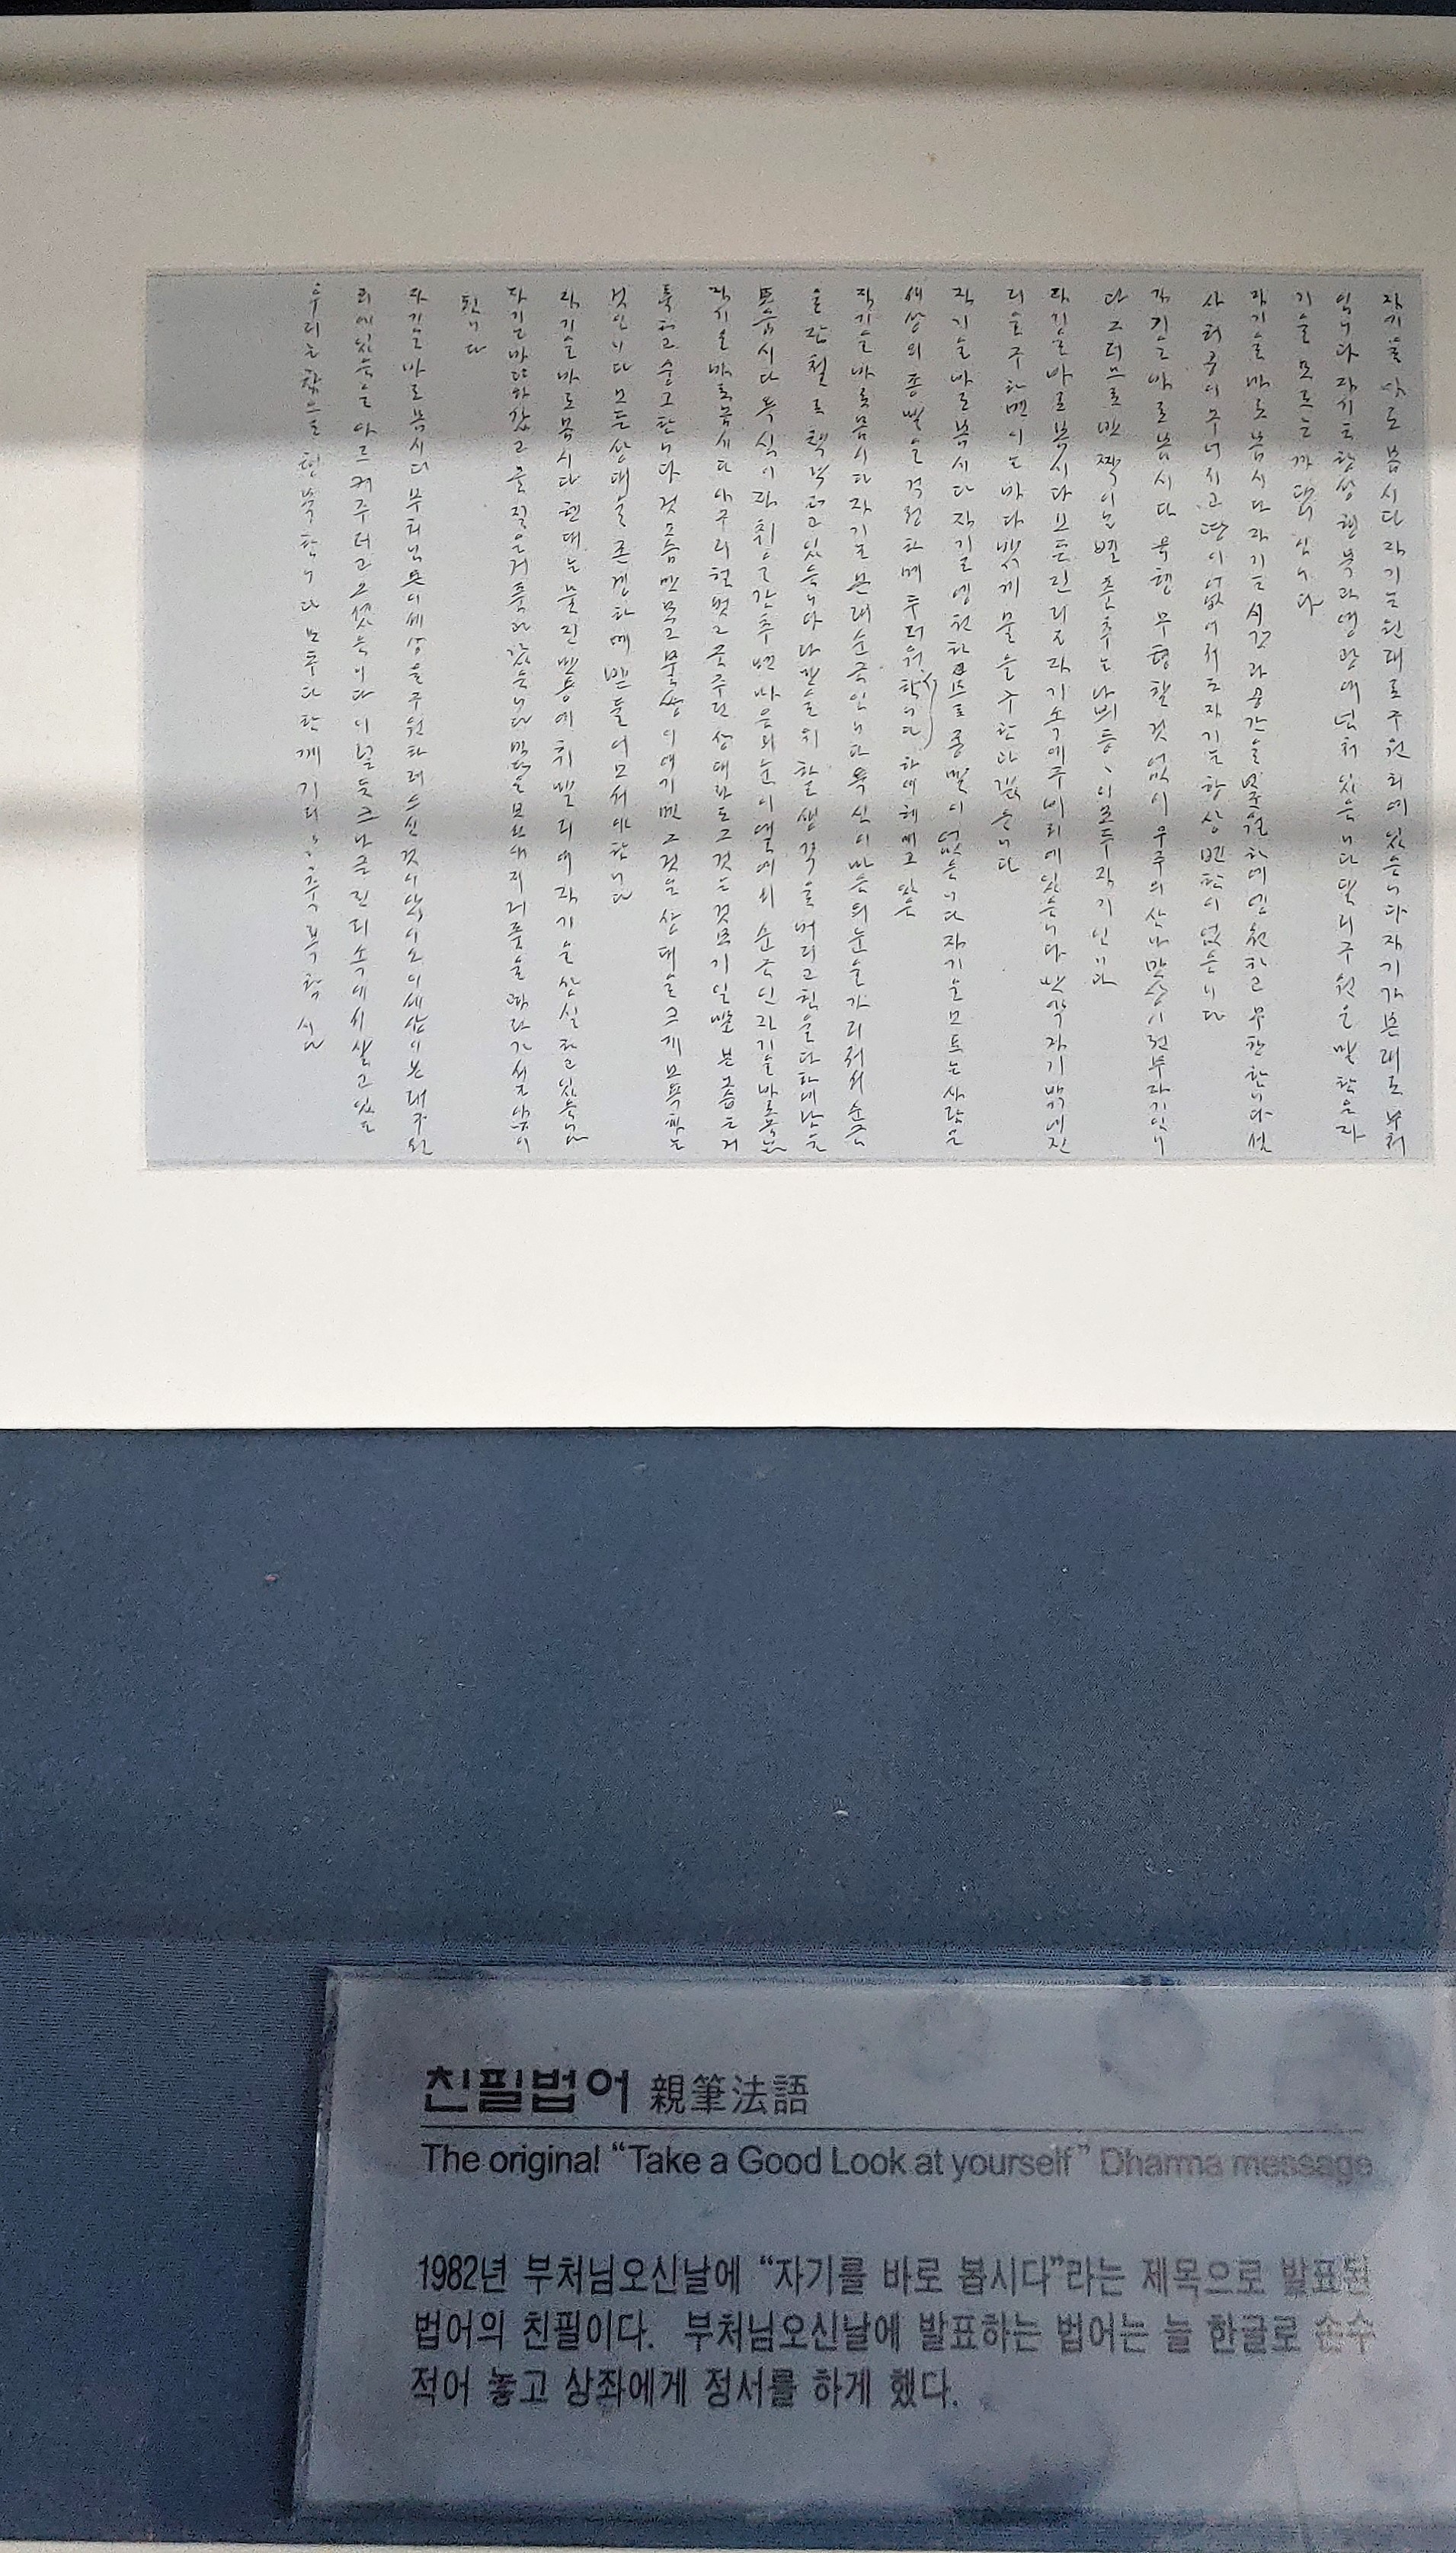 자기를 바로 봅시다 자기는 원래로 구원 되에 있습니다 자기가 본래로 부처
입니다 자기는 항상 행복과 영광에 넘처 있습니다 극락
기을 모르는 까닭입니다
자기를 바로 봅시다 자기는 시간과 공간을 초월하에 영원하고 무한합니다 설
사 허공이 무너지고 땅이 없어저도 자기는 항상 변함이 없습니다
자기를 바로 봅시다 유형 무형 할 것 없이 우주의 삼라만상이 전부 자기입니
다 그러므로 반짝이는 별 춤추는 나비 등、이 모두 자기입니다
자기를 바로 봅시다 모든 진리는 자기 속에 구비되에 있습니다 만약 자기 밖에 진
리를 구하면 이는 바다 밖에 물을 구함과 같습니다
자기를 바로 봅시다 자기는 영원하므로 종말이 없습니다 자기를 모르는 사람은
세상의 종말을 걱정하며 두려워 하에 헤매고 있습
자기를 바로 봅시다 자기는 본래 순금입니다 욕심이 마음의 눈을 가려 순금
을 잡철로 착각하고 있습니다 나만을 위하는 생각을 버리고 힘을 다하에 남을
욕심이 자취를 감추면 마음의 눈이 열에 순금인 자기를 바로
자기를 바로 봅시다 아무리 헐벗고 굶주린 상대라도 그것은 겉보기일 뿐 본모습은 거
룩하고 숭고합니다 겉모습만 보고 불쌍이 여기면 그것은 상대를 크게 모욕하는
것입니다 모든 상대를 존경하며 받들어 모셔야 합니다
자기를 바로 봅시다 현대는 물질만능에 휘말리에 자기를 상실하고 있습니다
자기는 바다와 같고 물질은 거품과 같습니다 바다를 보고 거품을 따라가지 않에야
됩니다
자기를 바로 봅시다 부처님은 이 세상을 구원하러 오신 것이 아니요 이 세상이 본래 구원
되에 있음을 아르켜 주려고 오셨습니다 이렇듯 크나큰 진리 속에서 살고 있는
우리는 참으로 행복합니다 모두 다 함께 기리、축복합시다
친필법어 親筆法語
The original “Take a Good Look at yourself” Dharma message
1982년 부처님오신날에 “자기를 바로 봅시다”라는 제목으로 발표된
법어의 친필이다. 부처님오신날에 발표하는 법어는 늘 한글로 손수
적어 놓고 상좌에게 정서를 하게 했다.